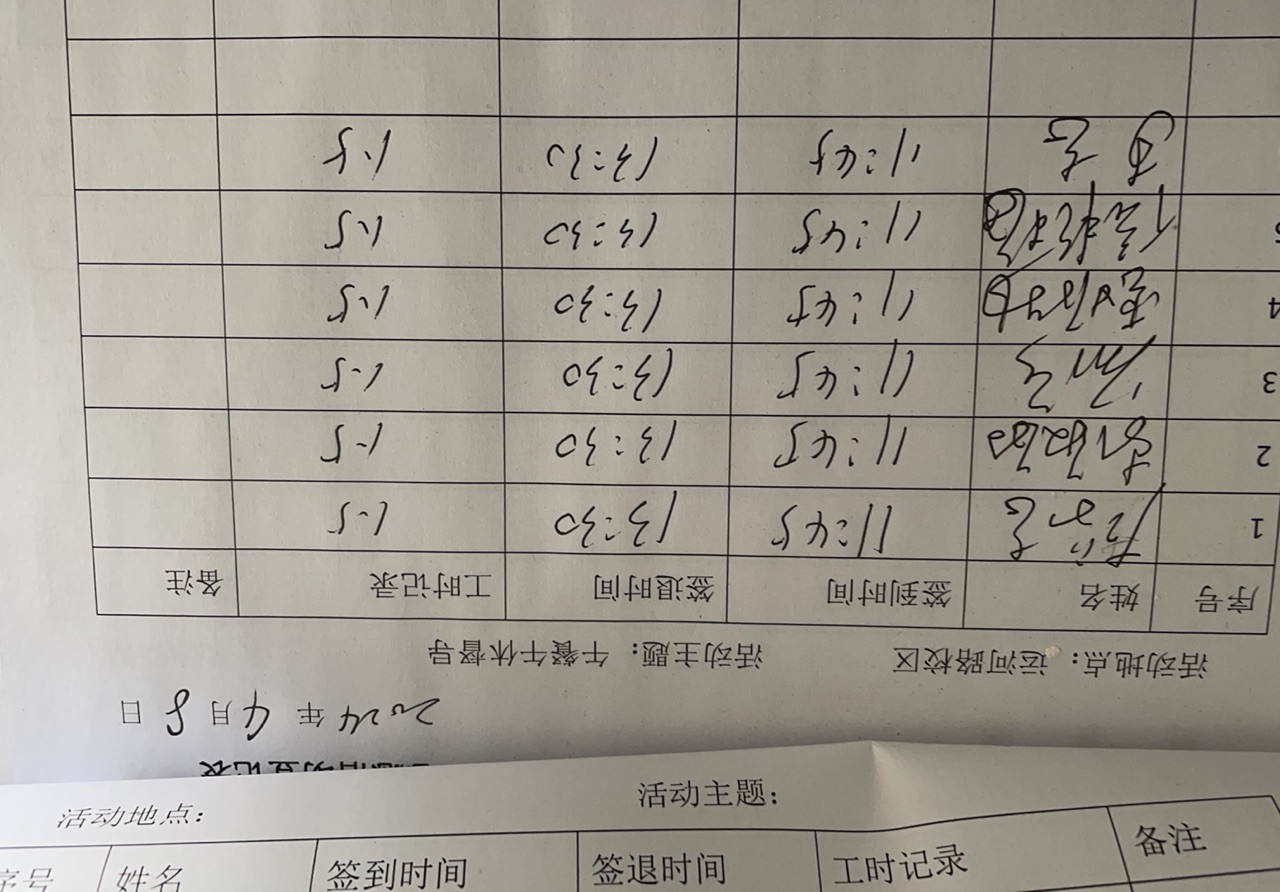 2024年4月8日
活动地点：运河路校区 活动主题：午餐午休督导
序号 姓名 签到时间 签退时间 工时记录 备注
1 11:45 13:30 1.5
2 11:45 13:30 1.5
3 11:45 13:30 1.5
4 11:45 13:30 1.5
5 11:45 13:30 1.5
11:45 13:30 1.5
活动地点： 活动主题：
序号 姓名 签到时间 签退时间 工时记录 备注